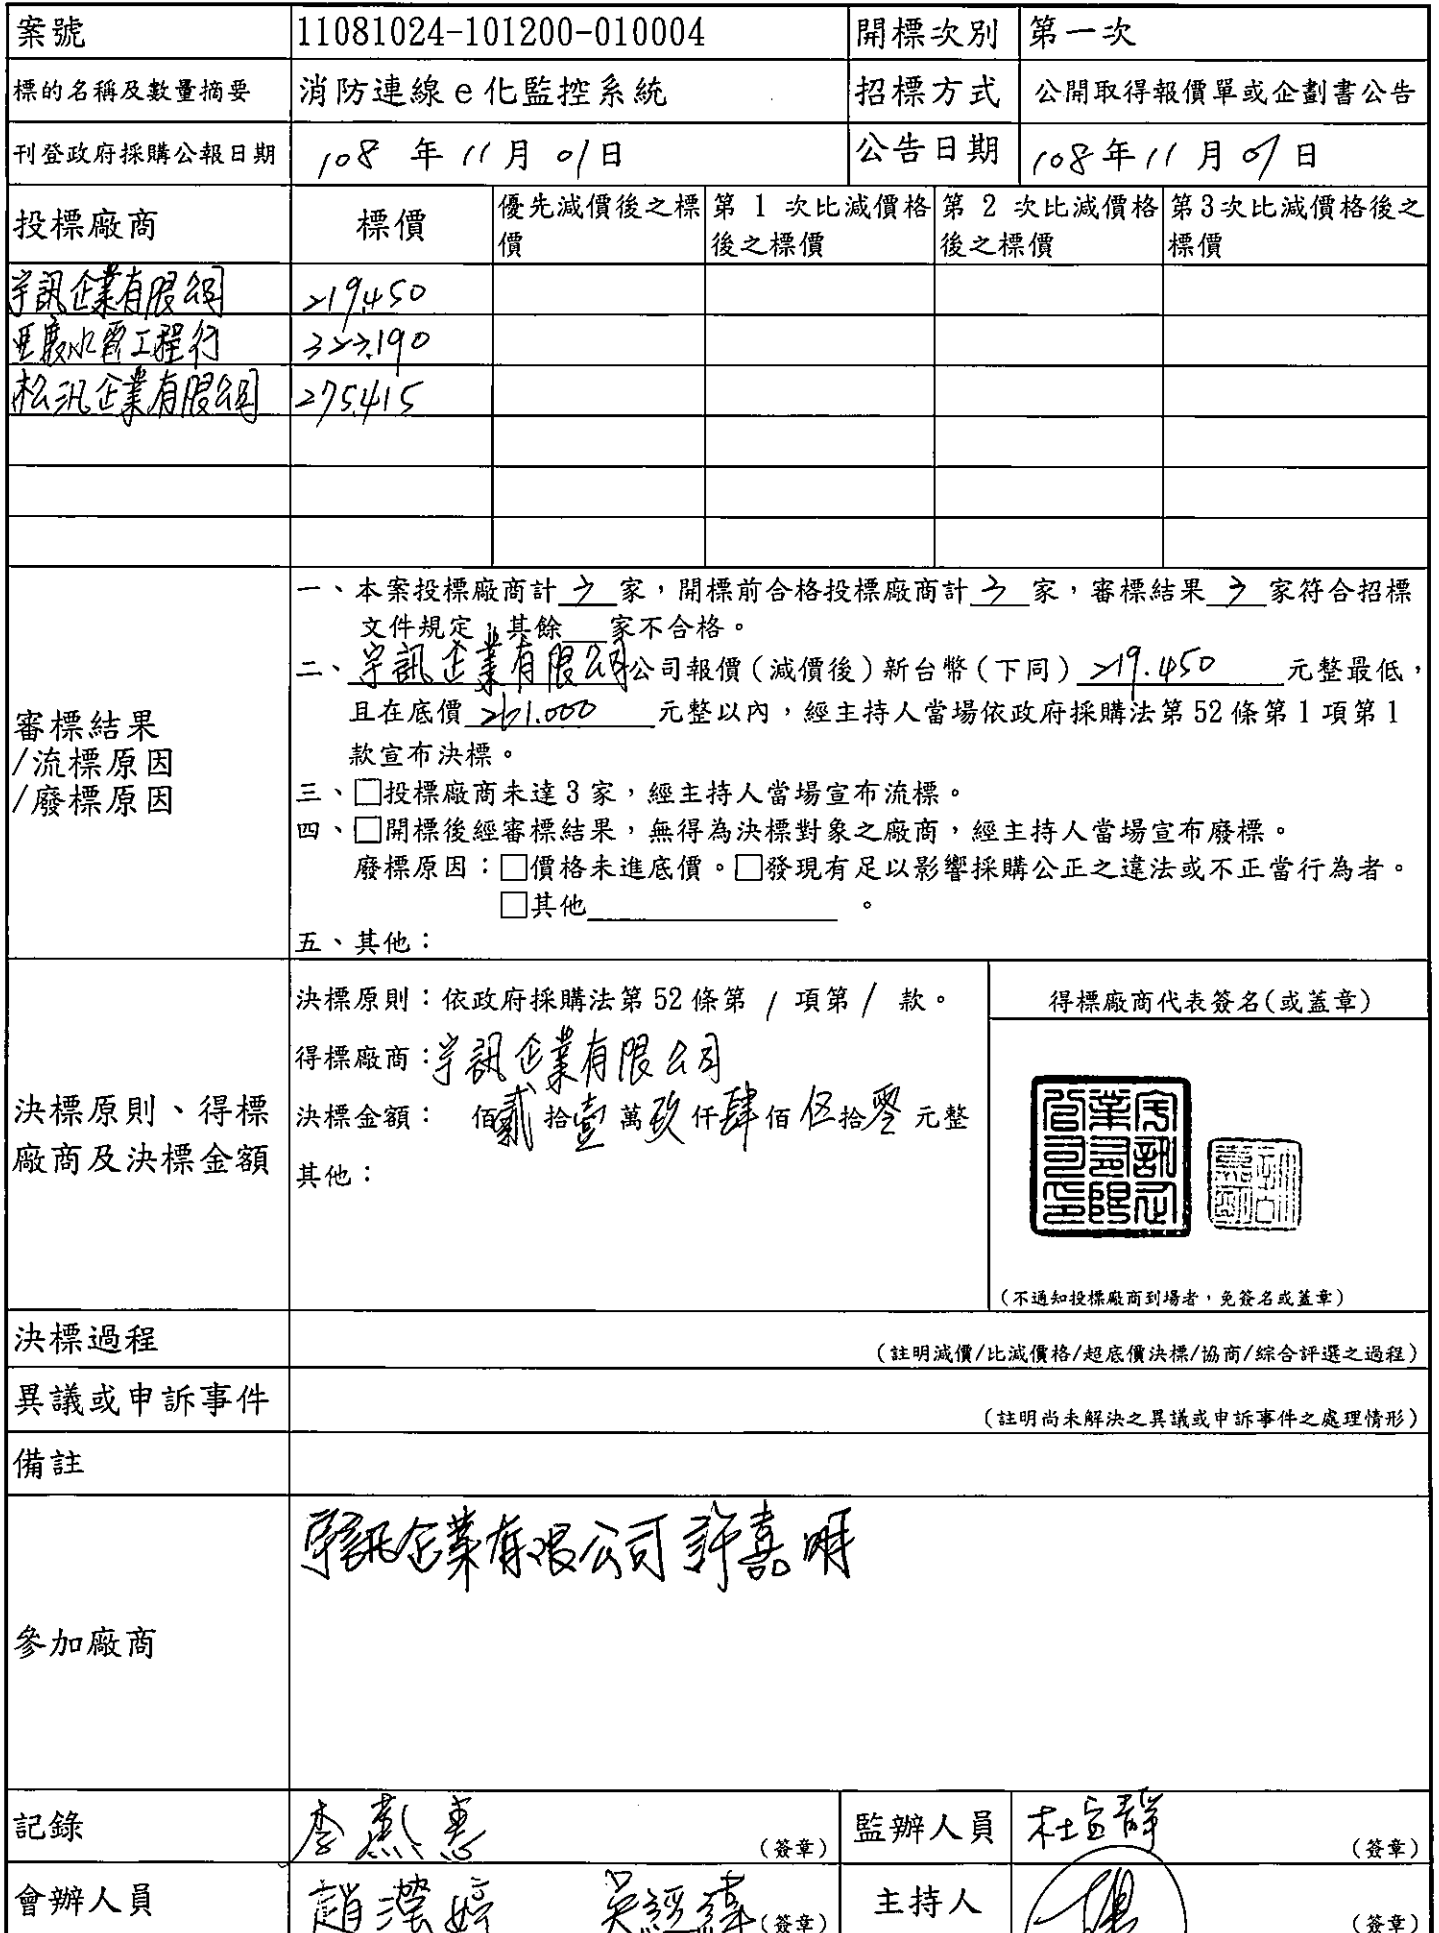 案號 11081024-101200-010004 開標次別 第一次
標的名稱及數量摘要 消防連線e化監控系統 招標方式 公開取得報價單或企劃書公告
刊登政府採購公報日期 108 年 11 月 01 日 公告日期 108 年 11 月 01 日
投標廠商 標價 優先減價後之標價 第 1 次比減價格後之標價 第 2 次比減價格後之標價 第3次比減價格後之標價
宇訊企業有限公司 219,450
水電工程行 323,190
松汎企業有限公司 275,415
審標結果
/流標原因
/廢標原因
一、本案投標廠商計 3 家，開標前合格投標廠商計 3 家，審標結果 3 家符合招標
文件規定，其餘 家不合格。
二、宇訊企業有限公司公司報價(減價後)新台幣(下同) 219.450 元整最低，
且在底價 元整以內，經主持人當場依政府採購法第 52 條第 1 項第 1
款宣布決標。
三、□投標廠商未達 3 家，經主持人當場宣布流標。
四、□開標後經審標結果，無得為決標對象之廠商，經主持人當場宣布廢標。
廢標原因：□價格未進底價。□發現有足以影響採購公正之違法或不正當行為者。
□其他 。
五、其他：
決標原則、得標
廠商及決標金額
決標原則：依政府採購法第 52 條第 1 項第 1 款。
得標廠商：宇訊企業有限公司
決標金額： 佰貳拾壹萬玖仟肆佰伍拾零元整
其他：
得標廠商代表簽名(或蓋章)
宇訊企業有限公司印
(不通知投標廠商到場者，免簽名或蓋章)
決標過程 (註明減價/比減價格/超底價決標/協商/綜合評選之過程)
異議或申訴事件 (註明尚未解決之異議或申訴事件之處理情形)
備註
參加廠商 宇訊企業有限公司 許嘉明
記錄 李燕惠 (簽章) 監辦人員 杜宜靜 (簽章)
會辦人員 趙瀅婷 吳經緯 (簽章) 主持人 (簽章)